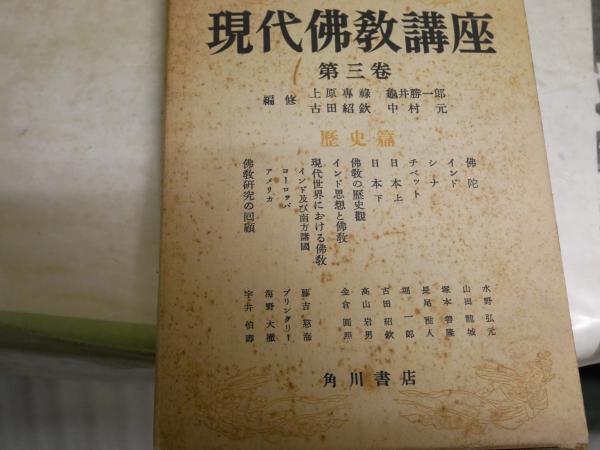 現代佛教講座
第三巻
編修
上原專祿 龜井勝一郎
古田紹欽 中村元
歷史篇
佛陀
インド
シナ
チベット
日本上
日本下
佛教の歷史觀
インド思想と佛教
現代世界における佛教
インド及び南方諸國
ヨーロッパ
アメリカ
佛教研究の回顧
水野弘元
山田龍城
塚本善隆
長尾雅人
堀一郎
古田紹欽
高山岩男
金倉圓照
藤吉慈海
ブリンクリー
海野大徹
宇井伯壽
角川書店